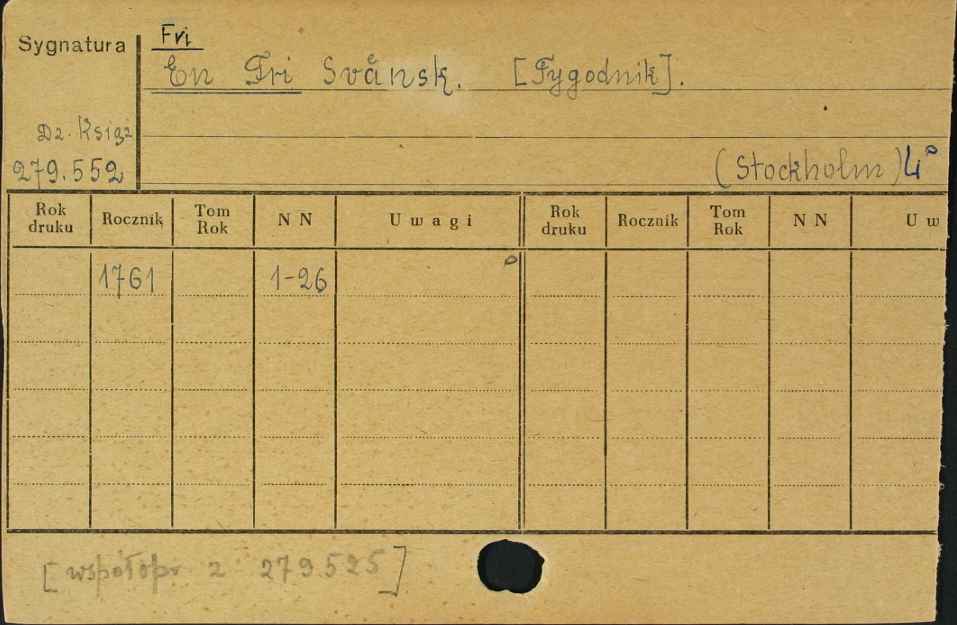 Fri
Sygnatura
En Fri Svånsk. [Tygodnik].
Dz. Książ
279.552
(Stockholm) 4°
Rok druku Rocznik Tom Rok NN Uwagi Rok druku Rocznik Tom Rok NN Uw
1761 1-26
[współopr z 279525]